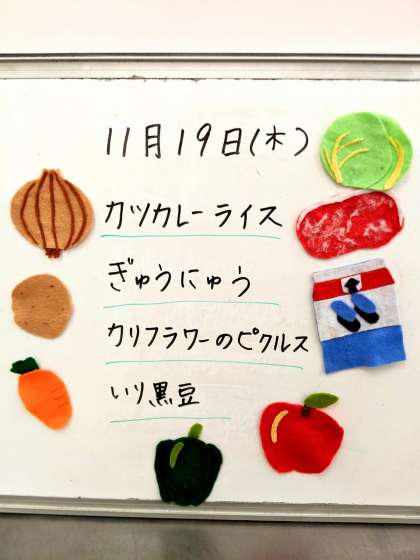 11月19日(木)
カツカレーライス
ぎゅうにゅう
カリフラワーのピクルス
いり黒豆